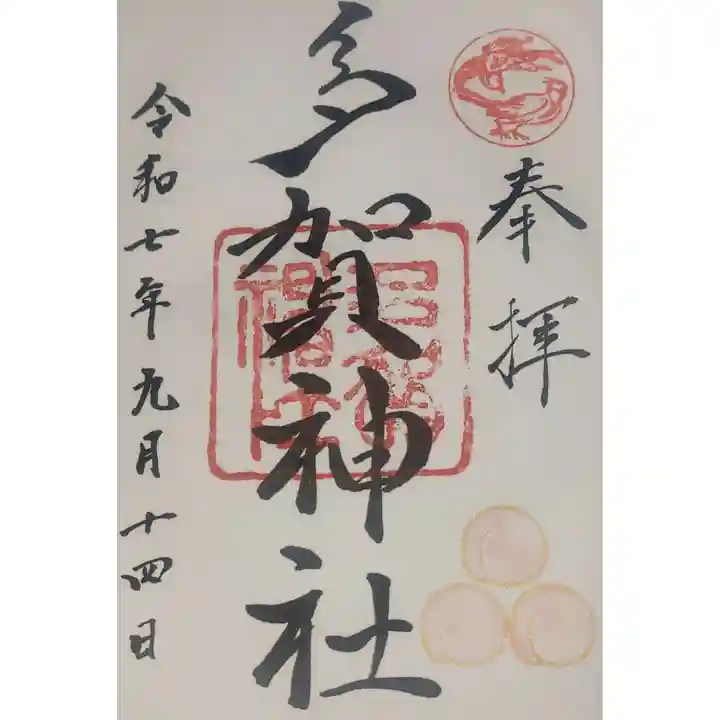 奉拝
多賀神社
令和七年九月十四日